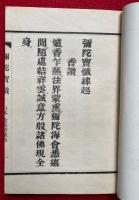 彌陀寶懺緣起
香讚
爐香乍爇法界蒙熏彌陀海會悉遙
聞隨處結祥雲誠意方殷諸佛現全
身
彌陀寶懺